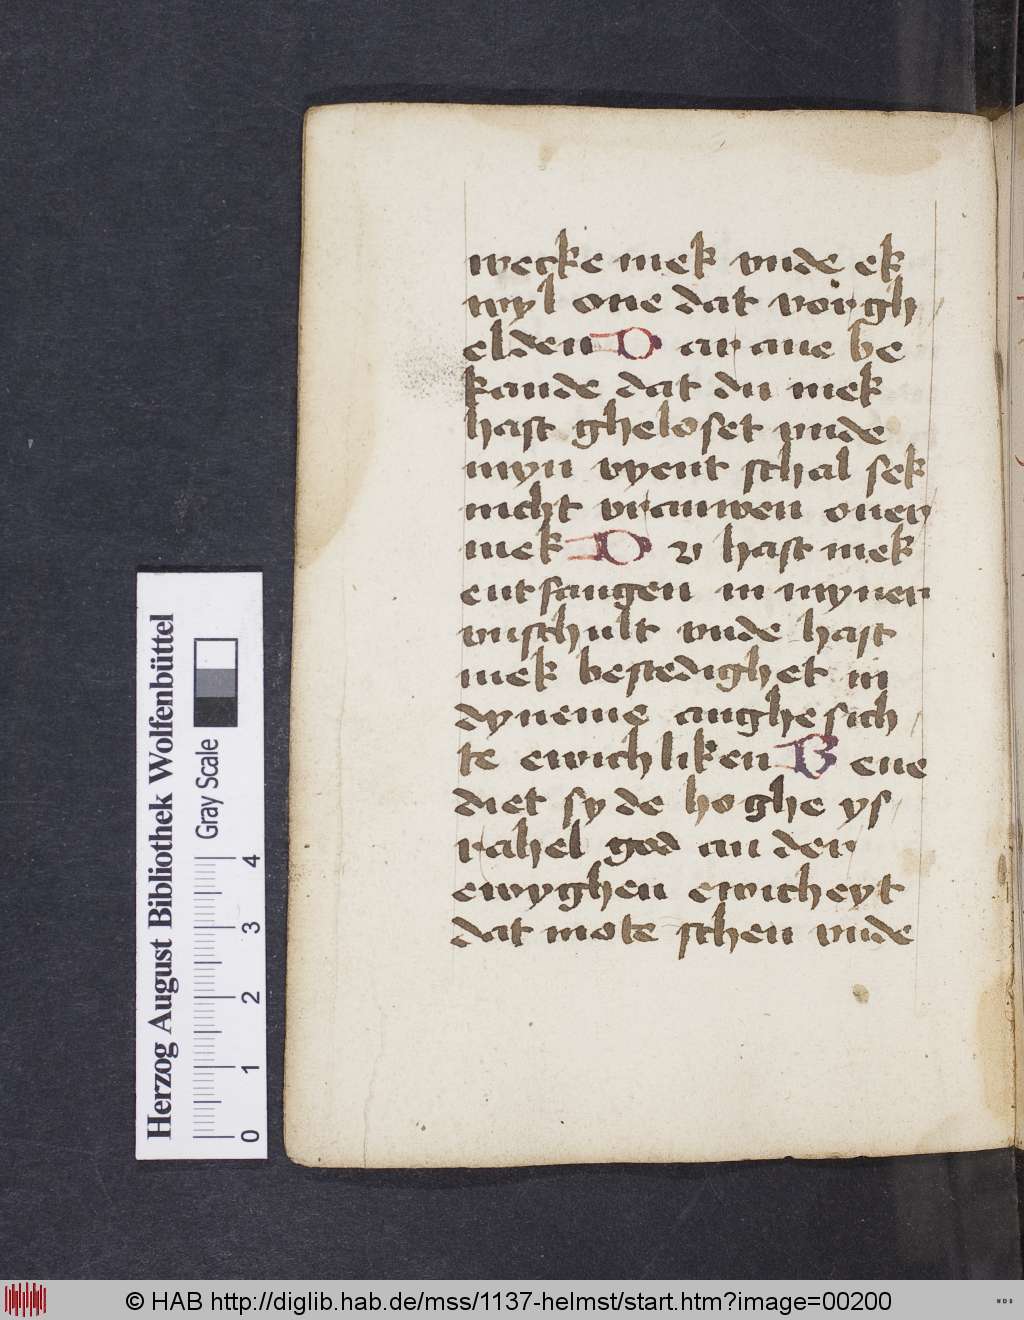 wecke mek vnde ek
wyl one dat vorgh
elden D ar ane be
kande dat du mek
hast gheloset vnde
myn vyent schal sek
nicht vrauwen ouer
mek D v hast mek
entfangen in myner
vnschult vnde hast
mek bestedighet in
dyneme anghesich
te ewichliken B ene
diet sy de hoghe ys
rahel god an der
ewyghen ewicheyt
dat mote schen vnde
Herzog August Bibliothek Wolfenbüttel
Gray Scale
0 1 2 3 4
© HAB http://diglib.hab.de/mss/1137-helmst/start.htm?image=00200